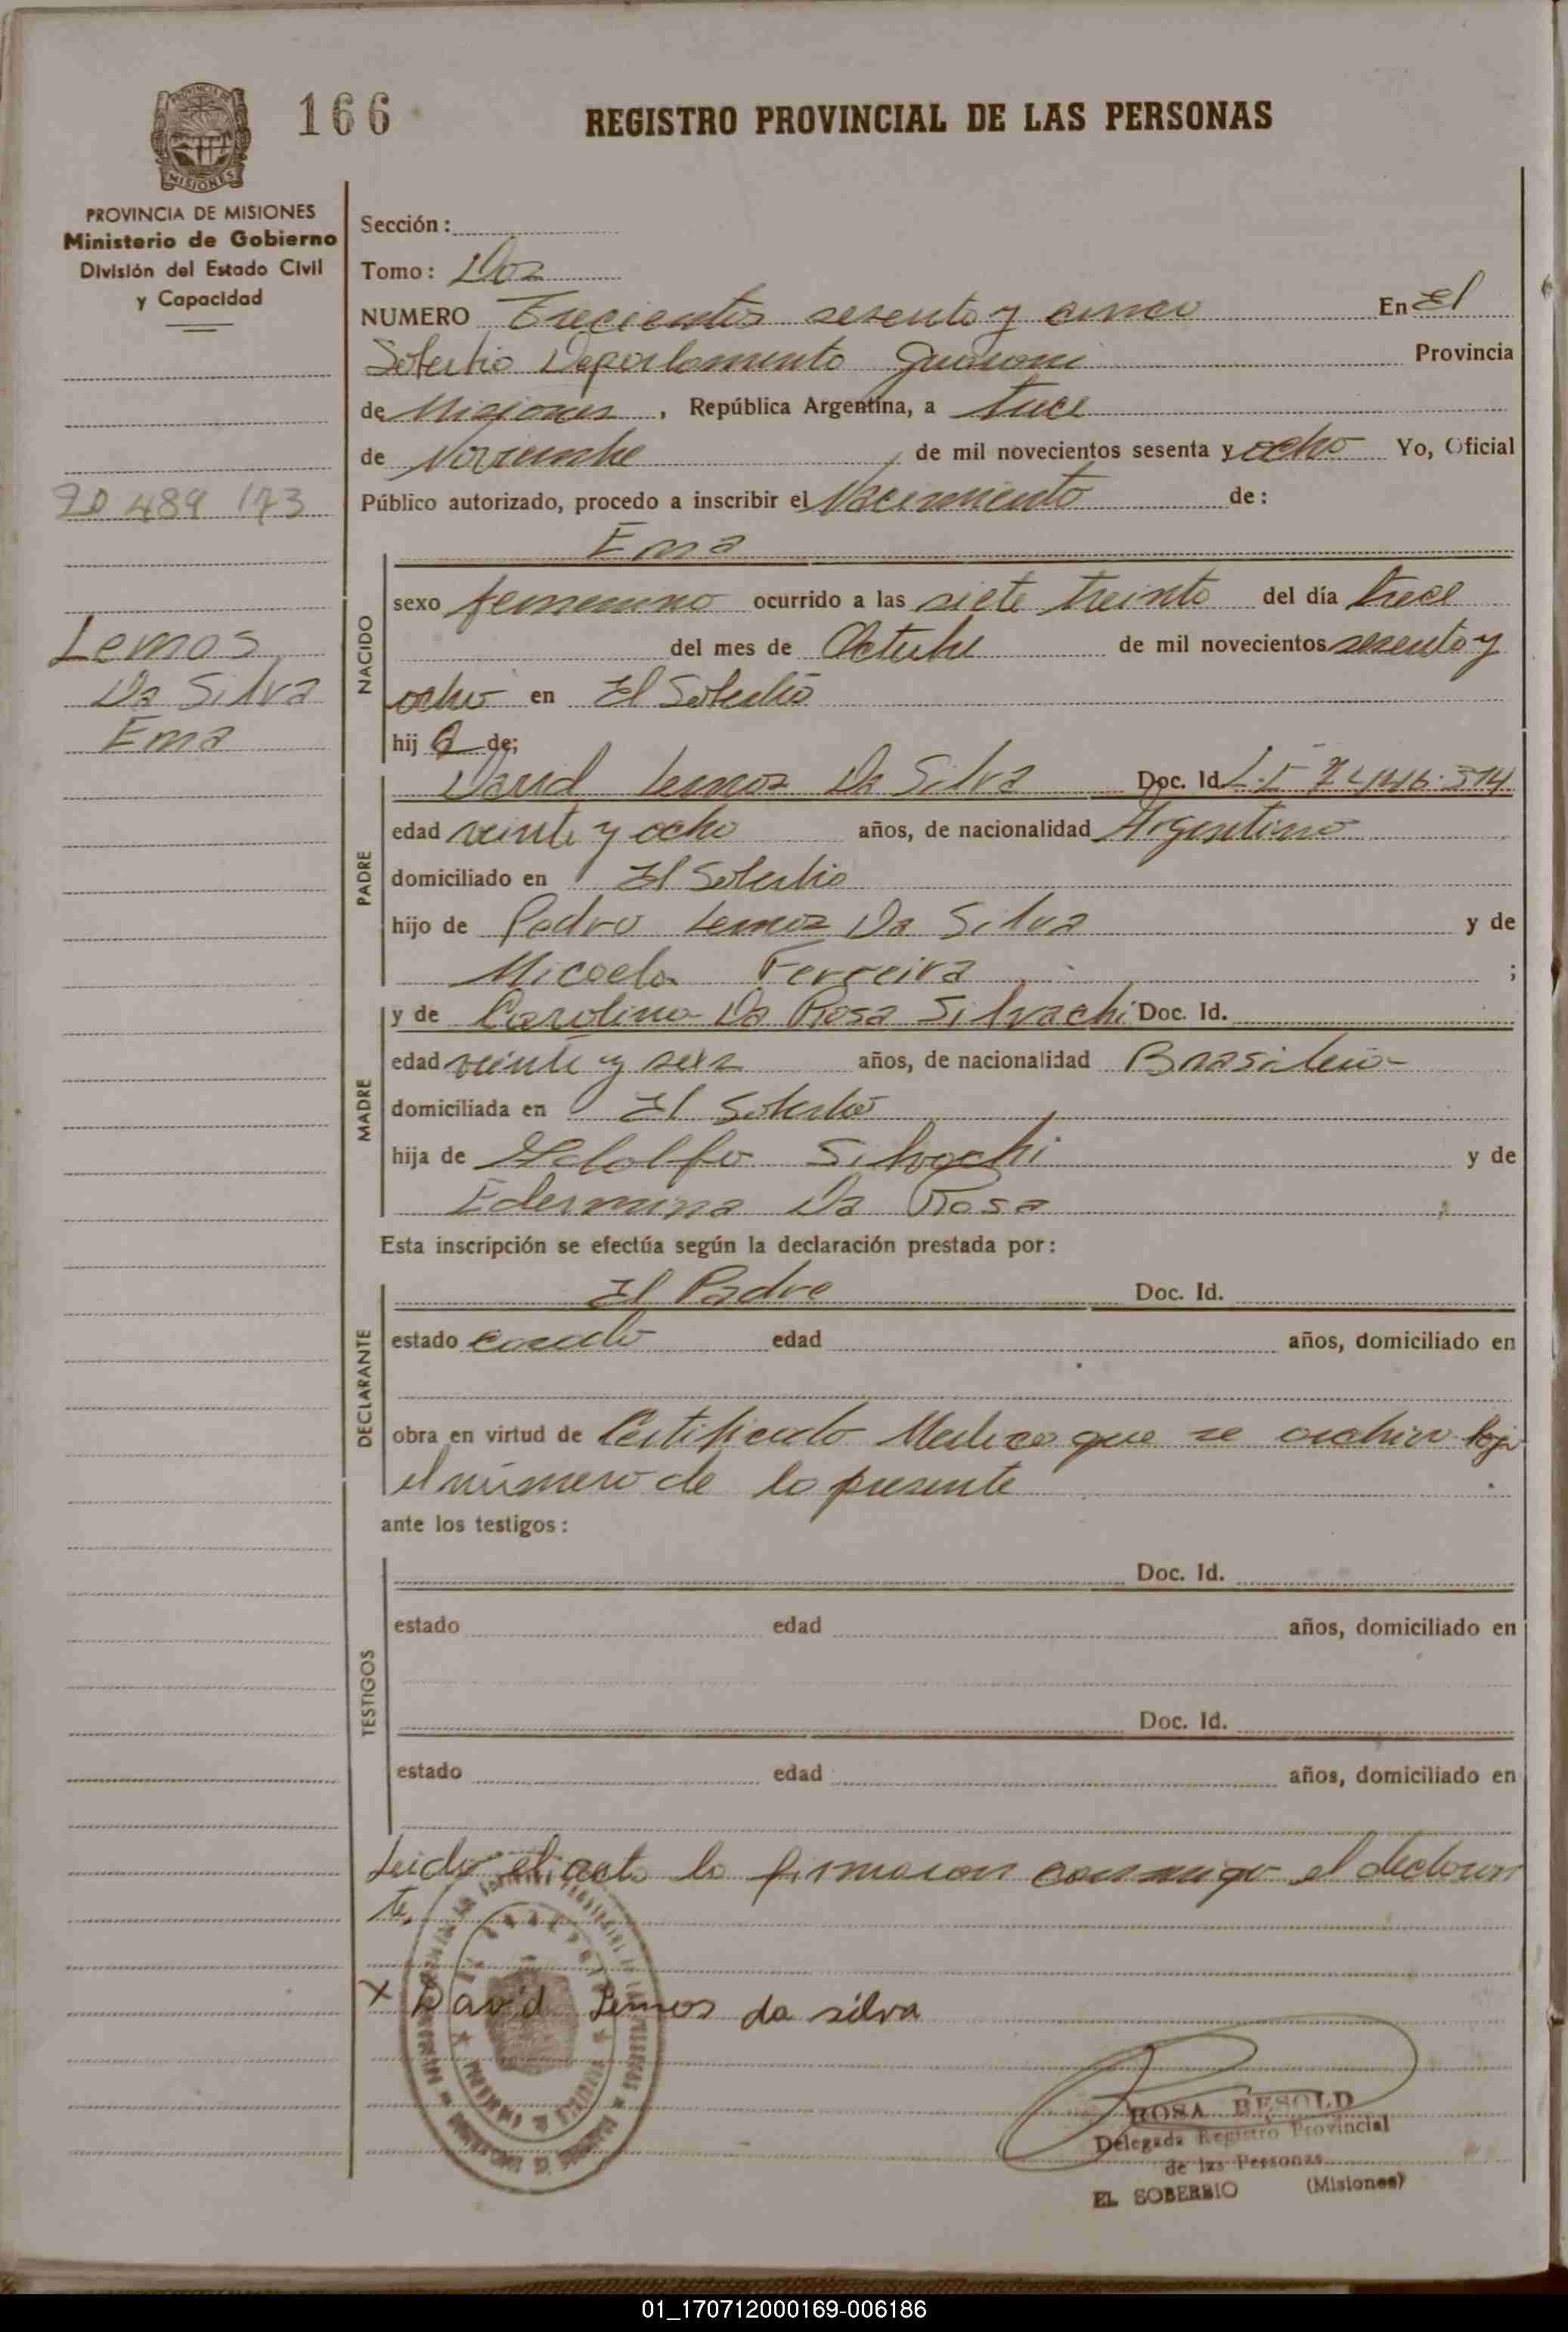 166
REGISTRO PROVINCIAL DE LAS PERSONAS
MISIONES
PROVINCIA DE MISIONES
Ministerio de Gobierno
División del Estado Civil
y Capacidad
20 489 173
Lemos
Da Silva
Ema
Sección:
Tomo: Dos
NUMERO Trecientos sesenta y cinco En El
Soberbio Departamento Guarani Provincia
de Misiones, República Argentina, a trece
de Noviembre de mil novecientos sesenta y ocho Yo, Oficial
Público autorizado, procedo a inscribir el Nacimiento de:
Ema
NACIDO
sexo femenino ocurrido a las siete treinta del día trece
del mes de Octubre de mil novecientos sesenta y
ocho en El Soberbio
hij a de;
PADRE
David Lemos Da Silva Doc. Id. L.E 7
edad veinte y ocho años, de nacionalidad Argentino
domiciliado en El Soberbio
hijo de Pedro Lemos Da Silva y de
Micaela Ferreira ;
MADRE
y de Carolina Da Rosa Silvachi Doc. Id.
edad veinte y seis años, de nacionalidad Brasilera
domiciliada en El Soberbio
hija de Adolfo Silvachi y de
Edermina Da Rosa
Esta inscripción se efectúa según la declaración prestada por:
DECLARANTE
El Padre Doc. Id.
estado casado edad años, domiciliado en
obra en virtud de Certificado Medico que se archiva bajo
el número de la presente
ante los testigos:
TESTIGOS
Doc. Id.
estado edad años, domiciliado en
Doc. Id.
estado edad años, domiciliado en
Leida el acta la firmaron conmigo el declaran
te.
x David Lemos da silva
ROSA BESOLD
Delegada Registro Provincial
de las Personas
EL SOBERBIO (Misiones)
01_170712000169-006186